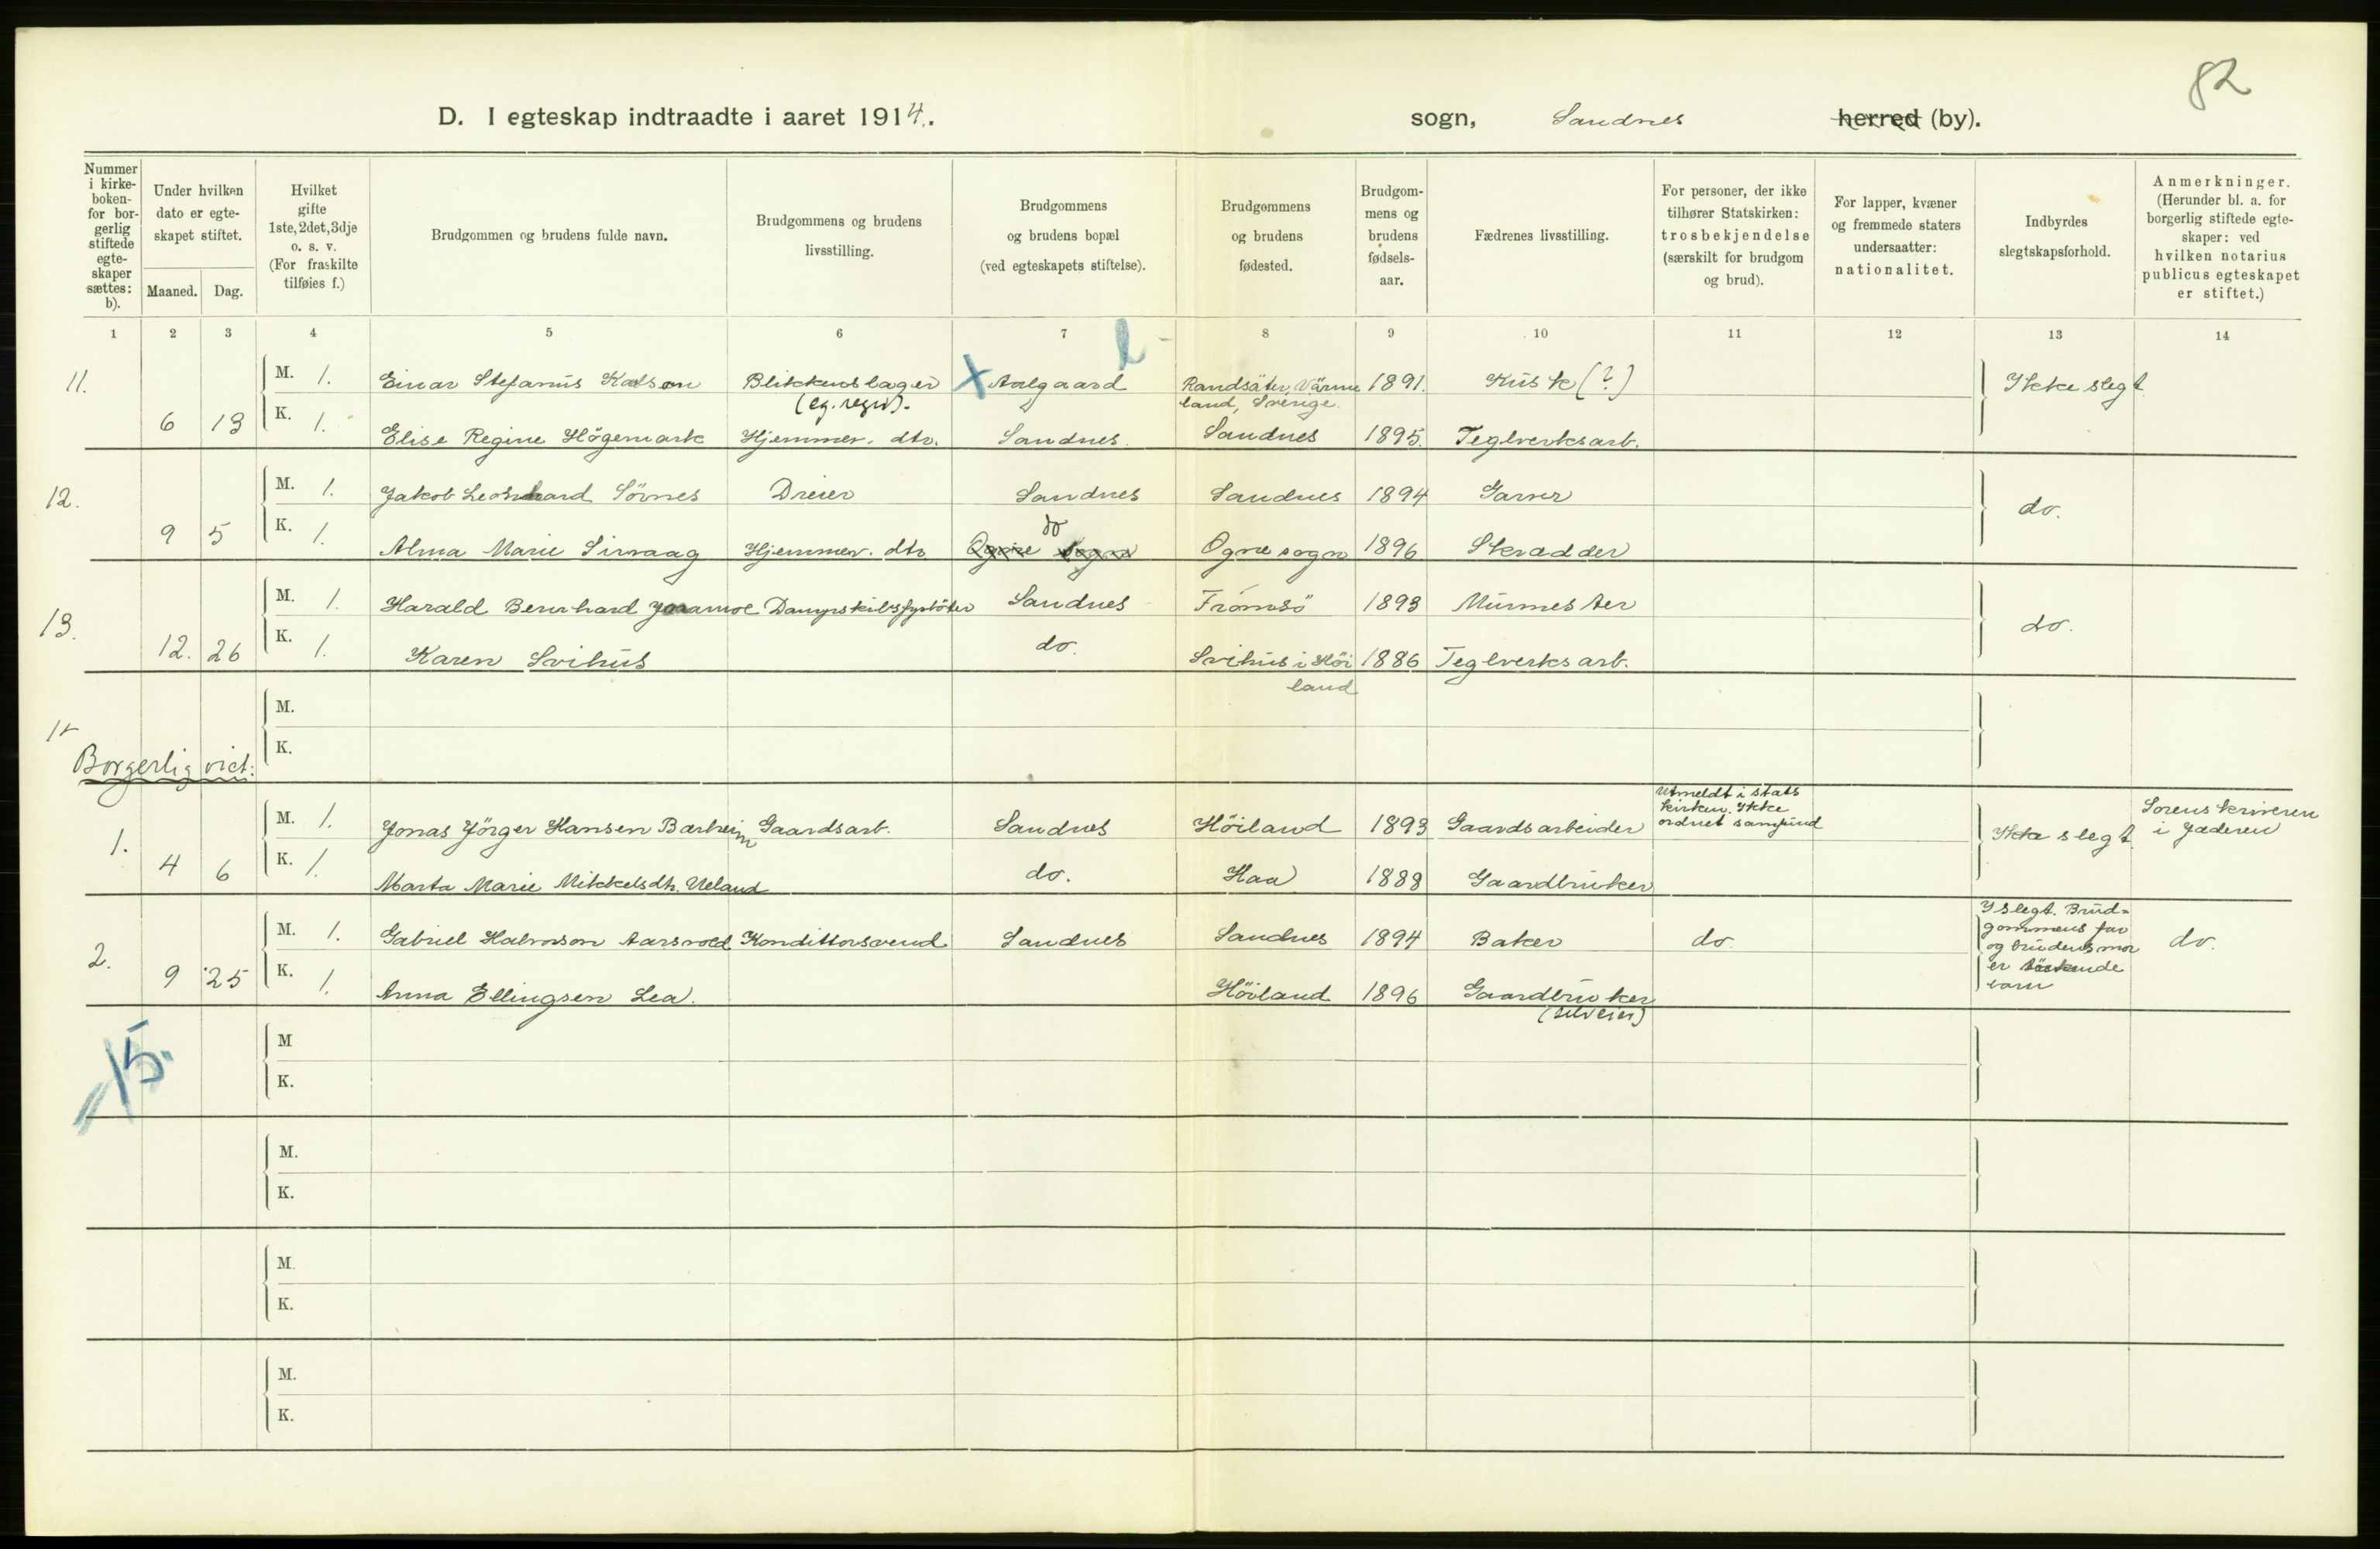 82
D. I egteskap indtraadte i aaret 1914.
sogn, Sandnes herred (by).
Nummer i kirke-boken- for bor-gerlig stiftede egte-skaper sættes: b).
Under hvilken dato er egte-skapet stiftet.
Maaned. Dag.
Hvilket gifte 1ste, 2det, 3dje o. s. v. (For fraskilte tilføies f.)
Brudgommen og brudens fulde navn.
Brudgommens og brudens livsstilling.
Brudgommens og brudens bopæl (ved egteskapets stiftelse).
Brudgommens og brudens fødested.
Brudgom-mens og brudens fødsels-aar.
Fædrenes livsstilling.
For personer, der ikke tilhører Statskirken: trosbekjendelse (særskilt for brudgom og brud).
For lapper, kvæner og fremmede staters undersaatter: nationalitet.
Indbyrdes slegtskapsforhold.
Anmerkninger. (Herunder bl. a. for borgerlig stiftede egte-skaper: ved hvilken notarius publicus egteskapet er stiftet.)
1 2 3 4 5 6 7 8 9 10 11 12 13 14
11. M. 1. Einar Stefanus Karlson Blikkenslager (eg. regn). X Aalgaard Randsäter, Värmeland, Sverige. 1891. Kusk (?) Ikke slegt
6 13 K. 1. Elise Regine Högemark Hjemmev. dtr. Sandnes. Sandnes 1895. Teglverksarb.
12. M. 1. Jakob Leonhard Sörnes Dreier Sandnes Sandnes 1894 Garver do.
9 5 K. 1. Alma Marie Sirvaag Hjemmev. dtr do Ogne sogn Ogne sogn 1896 Skrædder
13. M. 1. Harald Bernhard Dampskibsfyrböter Sandnes Tromsö 1893 Murmester do.
12. 26 K. 1. Karen Svihus do. Svihus i Höiland 1886 Teglverksarb.
M.
K.
Borgerlig viet:
1. M. 1. Jonas Jörger Hansen Barheim Gaardsarb. Sandnes Höiland 1893 Gaardsarbeider Utmeldt i stats kirken. Ikke ordnet samfund Ikke slegt. Sorenskriveren i Jæderen
4 6 K. 1. Marta Marie Mikkelsdtr. Ueland do. Haa 1888 Gaardbruker
2. M. 1. Gabriel Halvorson Aarsvold Konditторsvend Sandnes Sandnes 1894 Baker do. I slegt. Brud=gommens far og brudens mor er söskende barn do.
9 25 K. 1. Anna Ellingsen Lea. Höiland 1896 Gaardbruker (selveier)
15.
M
K.
M.
K.
M.
K.
M.
K.